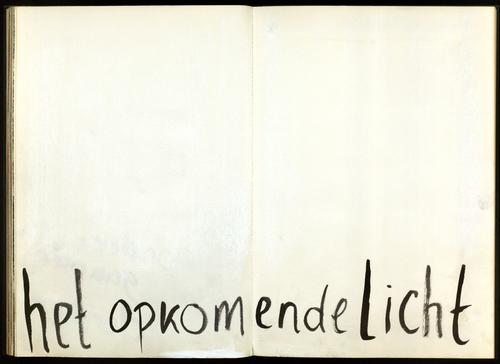 het opkomende licht